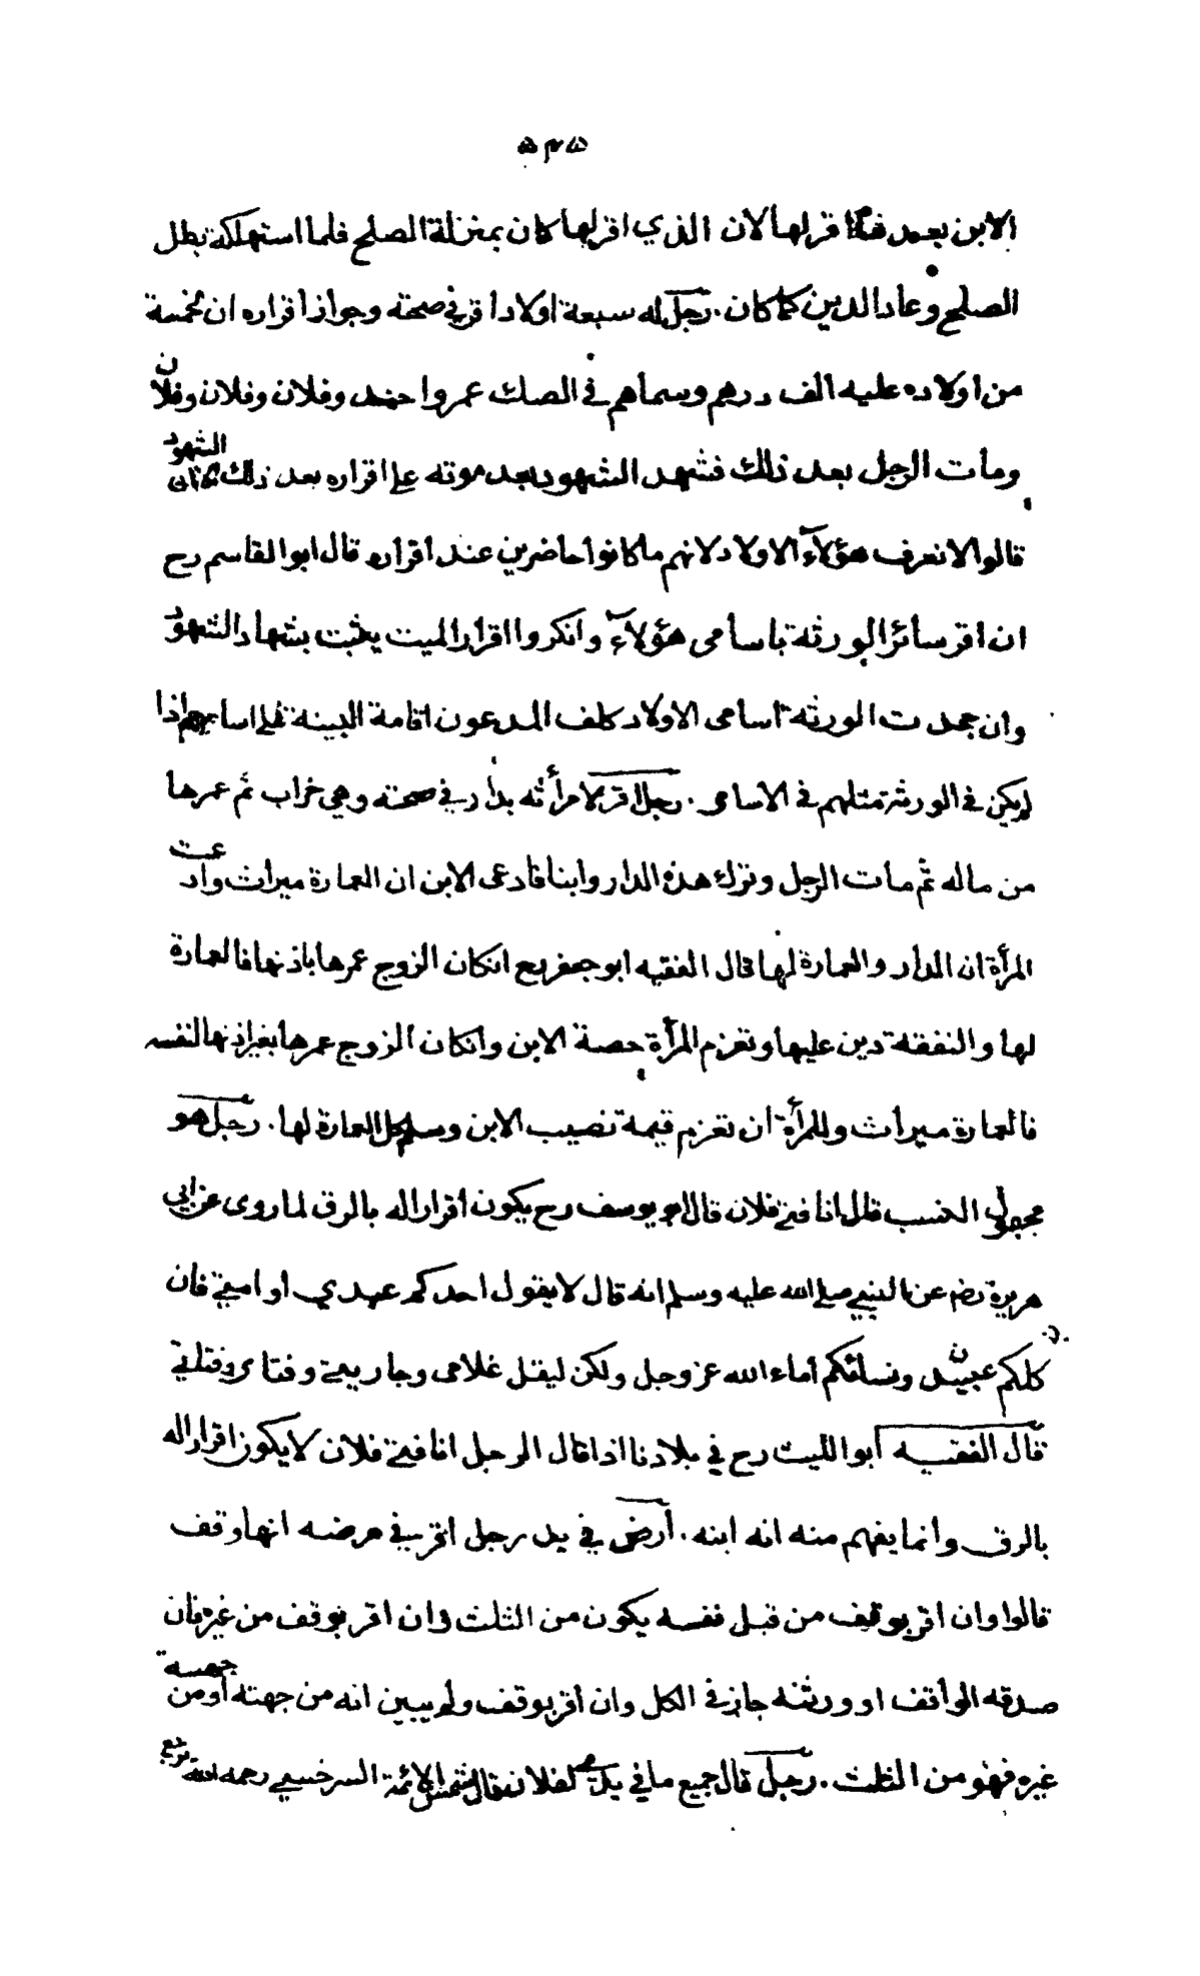 الابن بعد ما اقر لها لان الذي اقر لها كان بمنزلة الصلح فلما استهلكه بطل
الصلح وعاد الدين كما كان. رجل له سبعة اولاد اقر في صحته وجواز اقراره ان لخمسة
من اولاده عليه الف درهم وسماهم في الصك عمروا وفلان وفلان وفلان
ومات الرجل بعد ذلك فشهد الشهود بعد موته على اقراره بعد ذلك الشهود
قالوا لا نعرف هؤلآء الاولاد لانهم ما كانوا حاضرين عند اقراره قال ابو القاسم رح
ان اقر سائر الورثة باسامى هؤلآء وانكروا اقرار الميت يثبت بشهاد الشهود
وان جحدت الورثة اسامى الاولاد كلف المدعون اقامة البينة على اساميهم اذا
لم يكن في الورثة مثلهم في الاسامى. رجل اقر لامرأته بدار في صحته وهي خراب ثم عمرها
من ماله ثم مات الرجل وترك هذه الدار وابنا فادعى الابن ان العمارة ميراث وادعت
المرأة ان الدار والعمارة لها قال الفقيه ابو جعفر رح انكان الزوج عمرها باذنها فالعمارة
لها والنفقة دين عليها وتغرم المرأة حصة الابن وانكان الزوج عمرها بغير اذنها لنفسه
فالعمارة ميراث وللمرأة ان تغرم قيمة نصيب الابن وسلم كل العمارة لها. رجل هو
مجهول النسب قال انا فتى فلان قال ابو يوسف رح يكون اقرارا له بالرق لما روى عن ابي
هريرة رضه عن النبي صلى الله عليه وسلم انه قال لا يقول احدكم عبدي او امتي فان
كلكم عبيد ونسائكم أماء الله عز وجل ولكن ليقل غلامى وجاريتي وفتاى وفتاتي
قال الفقيه ابو الليث رح في بلادنا اذا قال الرجل انا فتى فلان لا يكون اقرارا له
بالرق وانما يفهم منه انه ابنه. أرض في يد رجل اقر في مرضه انها وقف
قالوا وان اقر بوقف من قبل نفسه يكون من الثلث وان اقر بوقف من غيره فان
صدقه الواقف او ورثته جاز في الكل وان أقر بوقف ولم يبين انه من جهته أو من جهة
غيره فهو من الثلث. رجل قال جميع ما في يدي لفلان قال شمس الائمة السرخسي رحمه الله